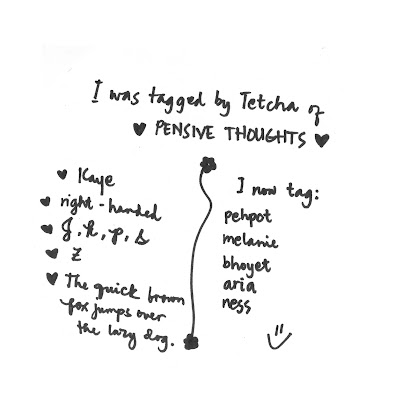 I was tagged by Tetcha of
♥ PENSIVE THOUGHTS ♥
♥ Kaye
♥ right-handed
♥ J, h, p, s
♥ Z
♥ The quick brown
fox jumps over
the lazy dog.
I now tag:
pehpot
melanie
bhoyet
aria
ness